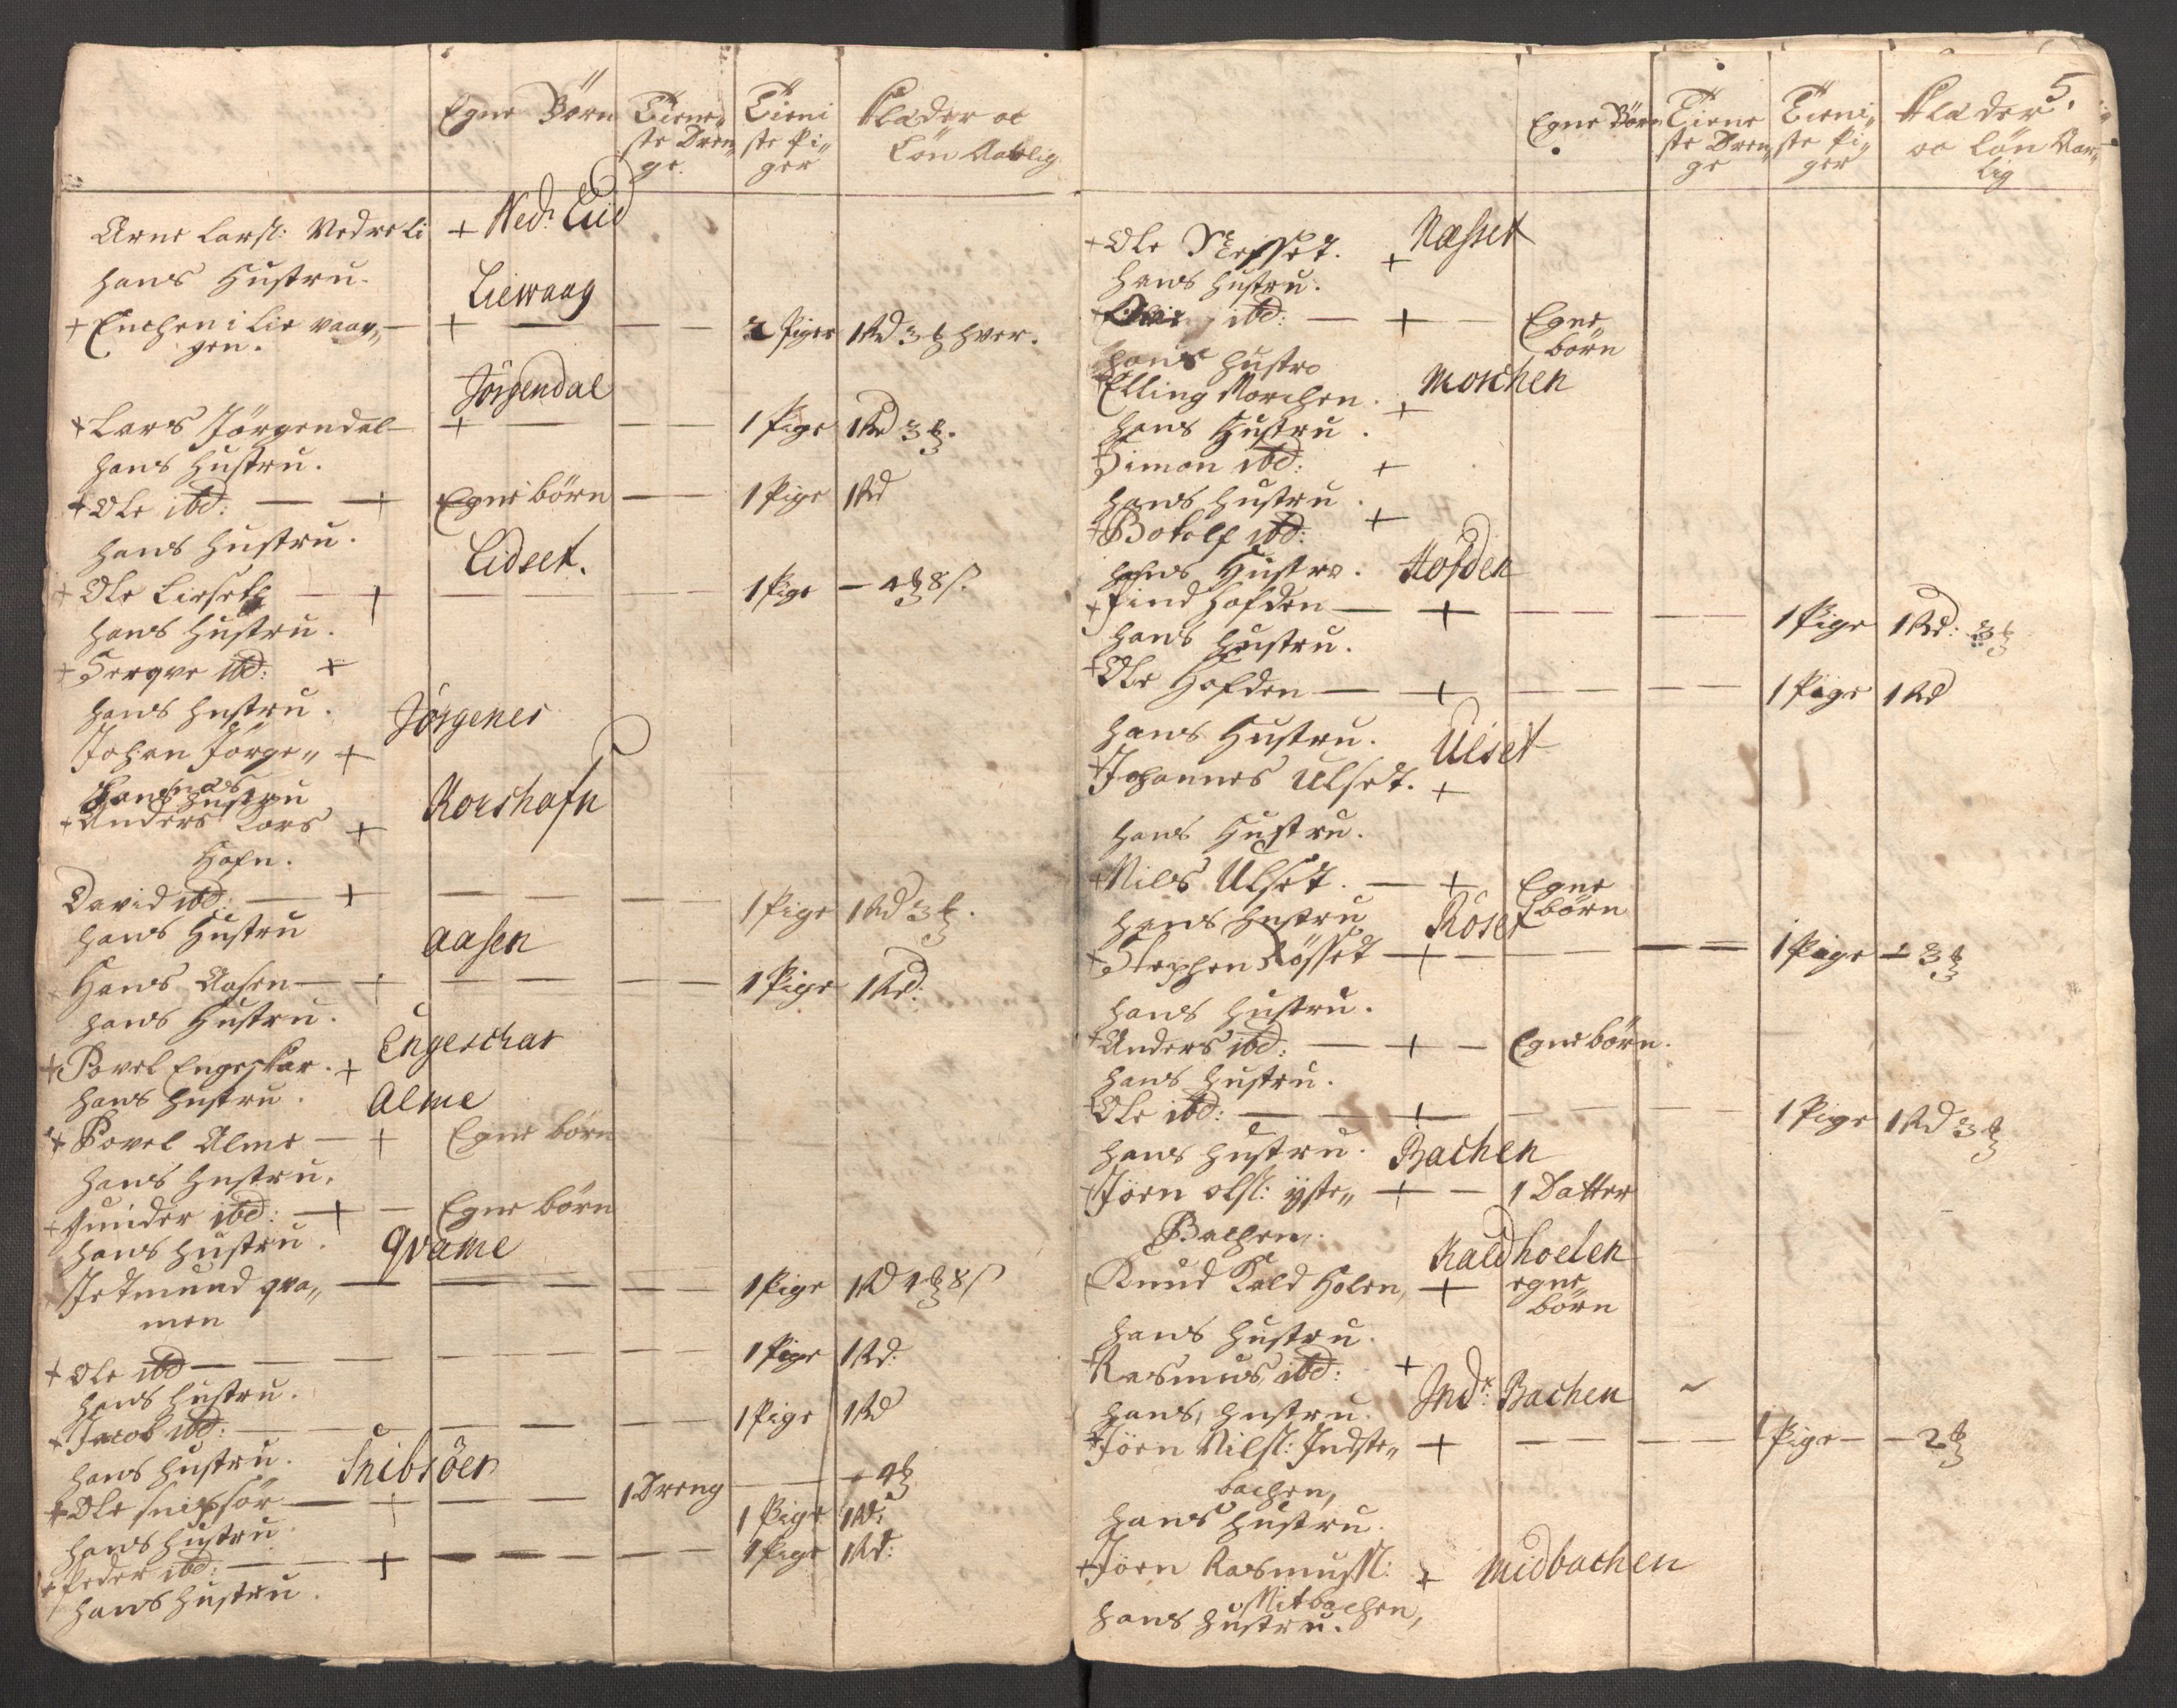 Egne Börn Tiene„ Tieni Klæder oc
ste Dren„ ste Pi„ Lön Aarlig
ge. ger
Arne Larsl: Nedreli + Ned: Liid
hans Hustru.
Liewaag
+ Enchen i Lie vaa„ — + — — — 2 Piger 1 Rd 3 ₰ hver.
gen.
Jörgendal
+ Lars Jörgendal — + — — — 1 Pige 1 Rd 3 ₰.
hans Hustru.
+ Ole ibd: — + Egne börn — — 1 Pige 1 Rd
hans Hustru.
Lidset.
+ Ole Lirseth — + — — — 1 Pige — 4 ₰ 8 ß.
hans Hustru.
+ Serqve ibd: +
hans Hustru.
Jörgenes
Johan Jörge„ +
næs
hans Hustru
Korshafn
+ Anders Kors +
Hafn.
David ibd: — + — — — 1 Pige 1 Rd 3 ₰.
hans Hustru
Aasen
+ Hans Aasen — + — — — 1 Pige 1 Rd:
hans Hustru.
Engeschar
+ Povel Engeskar. +
hans Hustru.
Alme
+ Povel Alme — + Egne börn
hans Hustru.
+ Gunder ibd: — + — Egne börn
hans Hustru.
Qvame
Jetmund qva„ — — — — 1 Pige 1 Rd 4 ₰ 8 ß
men
+ Ole ibd — — — — 1 Pige 1 Rd:
hans Hustru.
+ Jacob ibd: — — — — 1 Pige 1 Rd
hans Hustru.
Snibsöer
+ Ole snipsör — + — — 1 Dreng — — 4 ₰
1 Pige 1 Rd:
hans Hustru
+ Peder ibd: — + — — — 1 Pige 1 Rd:
hans Hustru.
5.
Egne Börn Tiene Tieni„ Klæder
ste Dren„ ste Pi„ oc Lön Aar„
ge ger lig
+ Ole Næsset. + Næsset
hans Hustru.
ibd: — + — Egne
börn
hans Hustro
Elling Morchen. + Morchen
hans Hustru.
Simon ibd: +
hans Hustru.
+ Botolf ibd: +
hans Hustro. Hofden
+ Find Hofden — + — — — 1 Pige 1 Rd: 3 ₰
hans Hustru.
+ Ole Hofden — + — — — 1 Pige 1 Rd
hans Hustru.
Ulset
+ Johannes Ulset. +
hans Hustru.
+ Nils Ulset. — + Egne
börn
hans Hustru Röset
+ Stephen Rösset — + — — — 1 Pige — 3 ₰
hans Hustru.
+ Anders ibd: — + — Egne börn.
hans Hustru.
Ole ibd: — + — — 1 Pige 1 Rd 3 ₰
hans Hustru. Bachen
+ Jörn olsl: yste„ — + — 1 Datter
Bachen.
Kaldhoelen
Knud Kald Holen, + egne
börn
hans Hustru.
+ Rasmus ibd: +
hans, Hustru. Indr: Bachen
+ Jörn Nilsl: Indste„ + — — — 1 Pige — — 2 ₰
bachen,
hans Hustru.
+ Jörn Rasmussl: + Midbachen
Mitbachen,
hans Hustru.